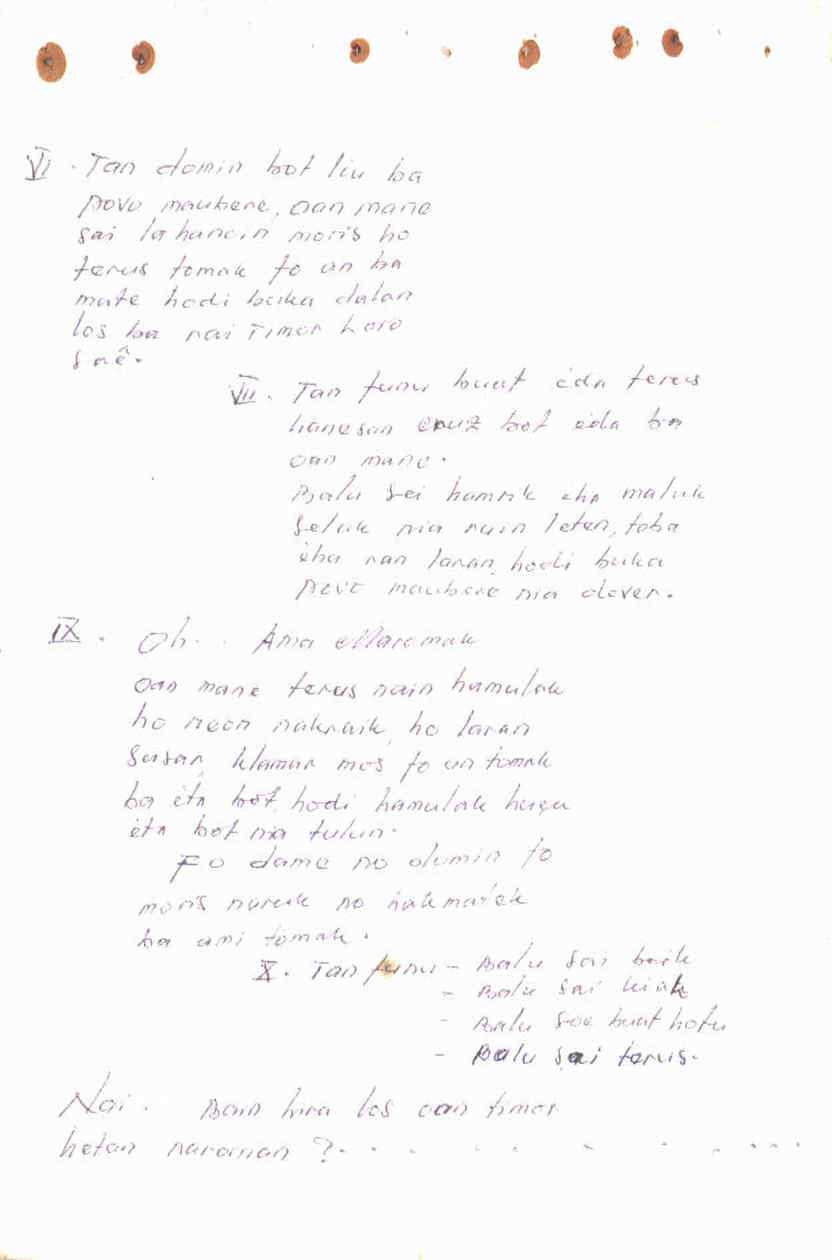 VI. Tan domin bot liu ba
povo maubere, oan mane
sai lahancin moris ho
terus tomak fo an ba
mate hodi buka dalan
los ba rai Timor Loro
Saê.
VII. Tan funu buat ida terus
hanesan cruz bot ida ba
oan mane.
Balu sei hamrik iha maluk
seluk nia ruin leten, toba
iha ran laran, hodi buka
povo maubere nia dever.
IX. Oh.. Ama Maromak
oan mane terus nain hamulak
ho neon nakraik, ho laran
susar, klamar mos fo an tomak
ba ita bót, hodi hamulak husu
ita bot nia tulun.
Fo dame no domin fo
moris naruk no hakmatek
ba ami tomak.
X. Tan funu - Balu sai beik
- Balu sai kiak
- Balu soe buat hotu
- Balu sai terus.
Nai. Bain hira los oan timor
hetan naroman ?. . . . . . . . . . .